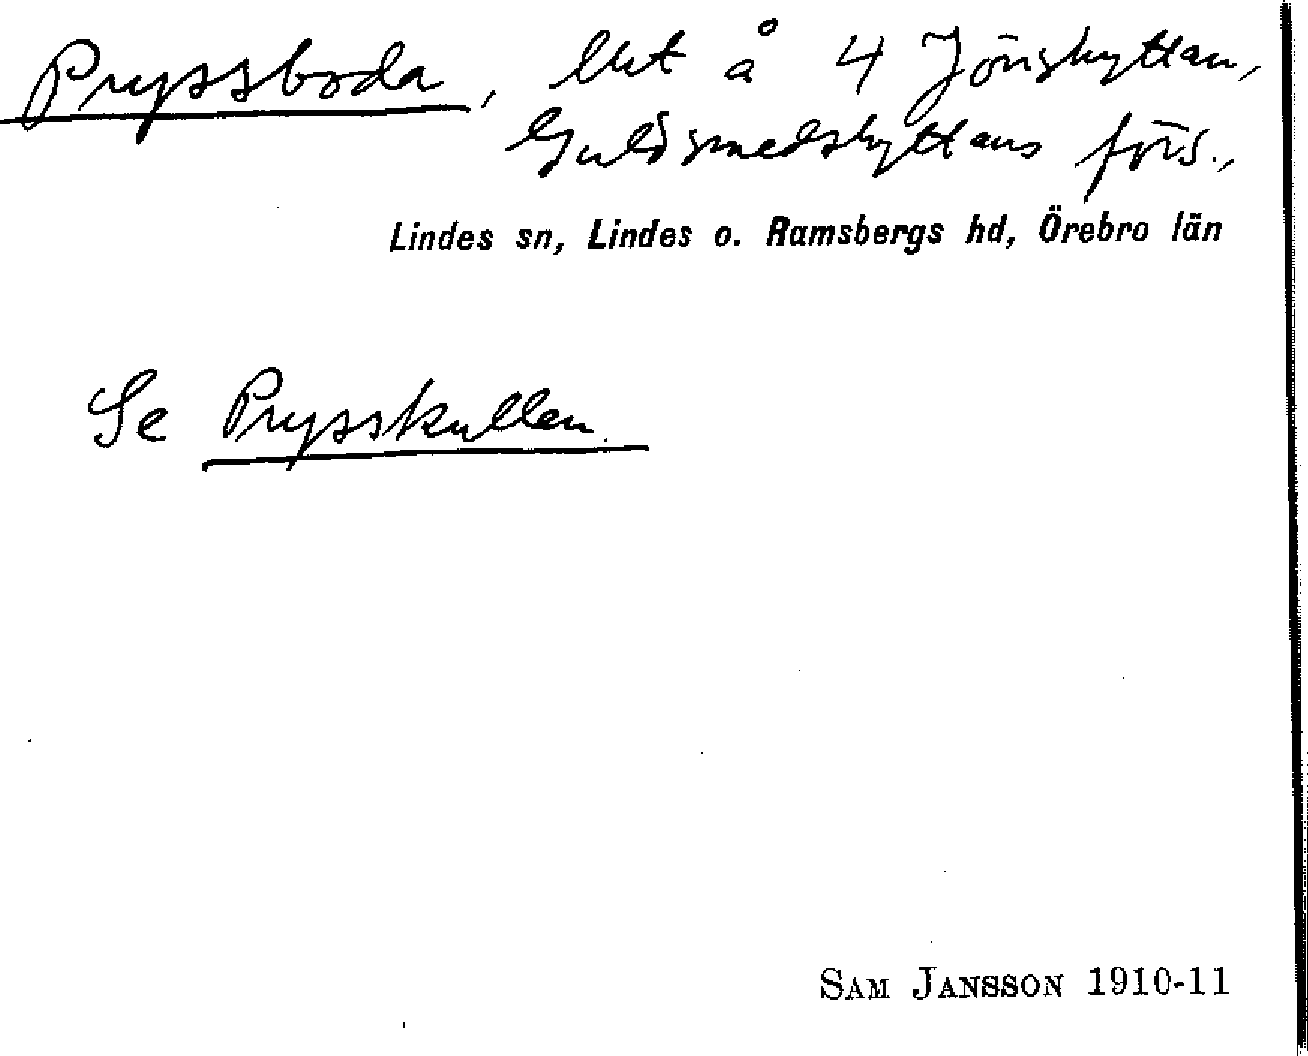 Pryssboda, lht å 4 Jönshyttan,
Guldsmedshyttans förs.,
Lindes sn, Lindes o. Ramsbergs hd, Örebro län
Se Prysskullen.
SAM JANSSON 1910-11